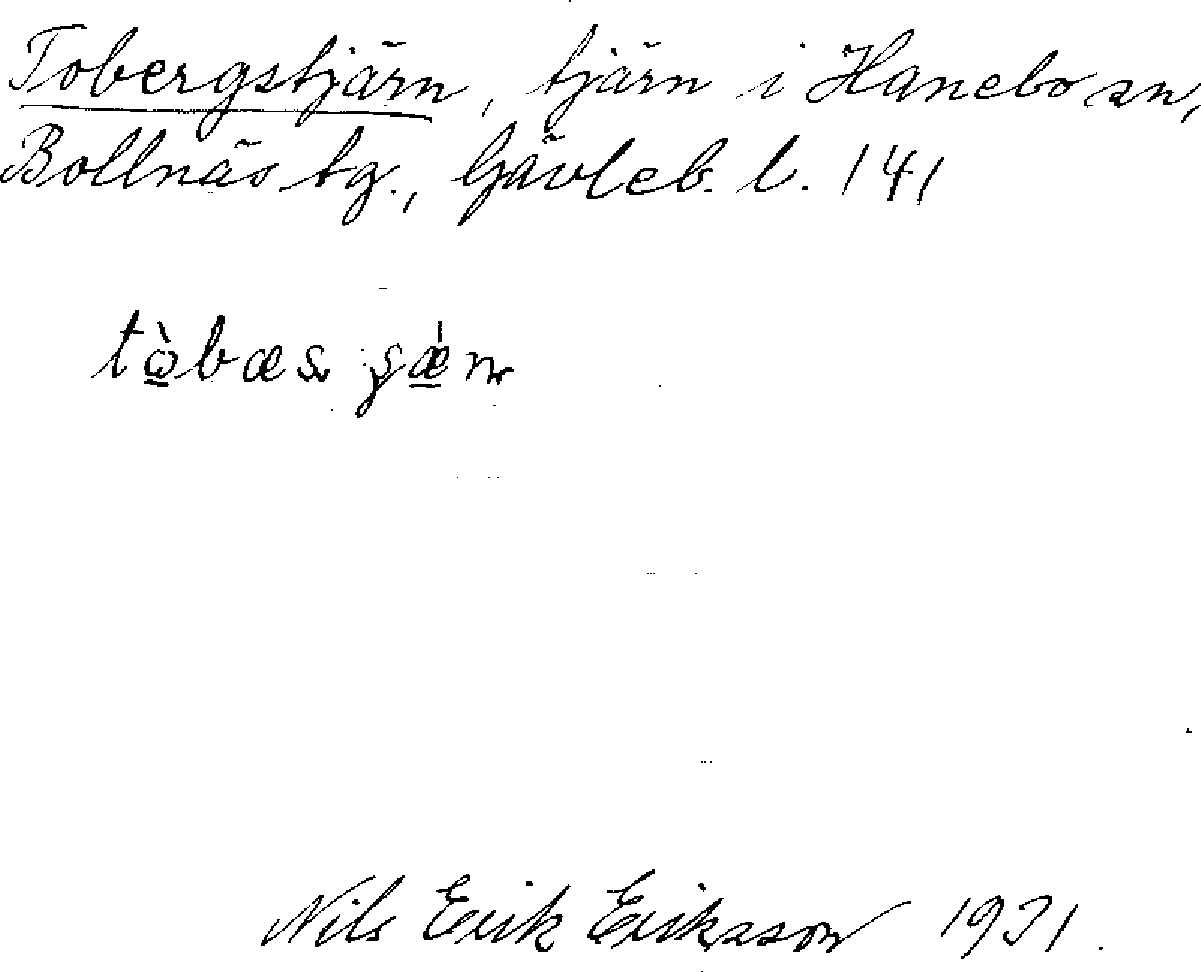 Tobergstjärn, tjärn i Hanebo sn,
Bollnäs tg., Gävleb. l. 141
Nils Erik Eriksson 1931.